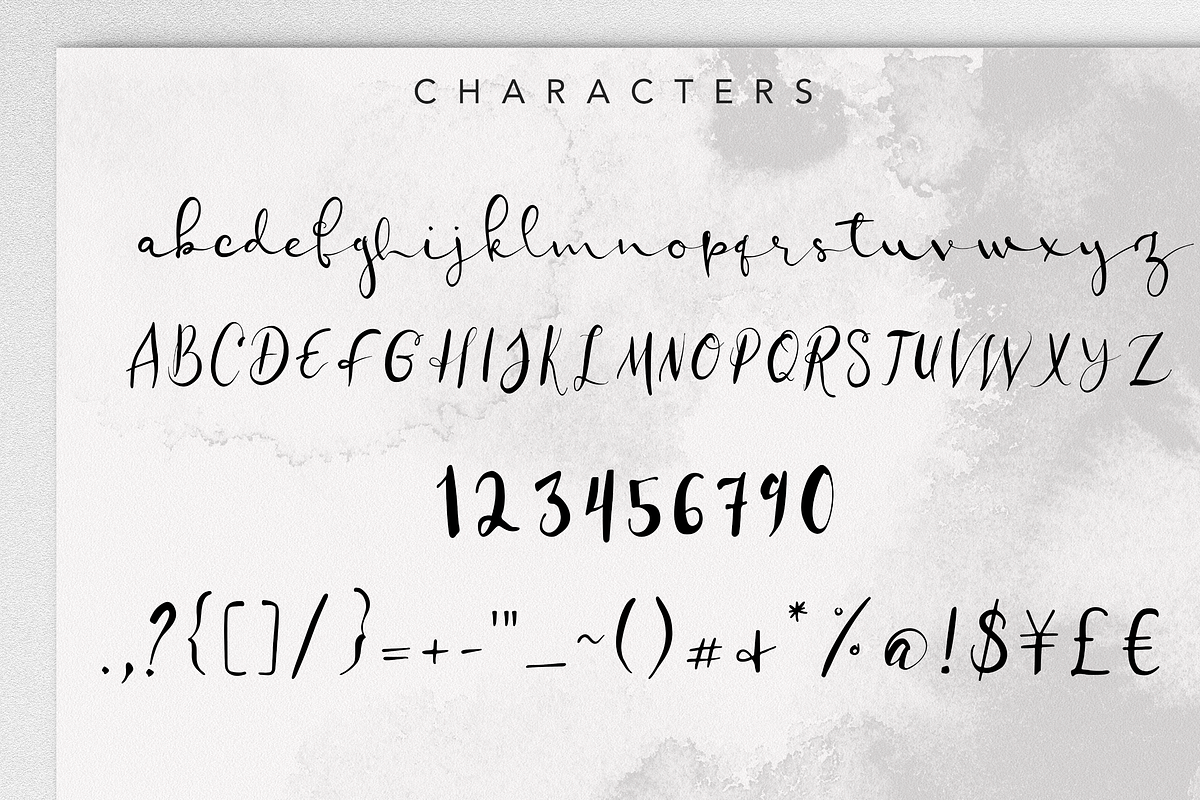 CHARACTERS
abcdefghijklmnopqrstuvwxyz
ABCDEFGHIJKLMNOPQRSTUVWXYZ
1234567​90
.,?{[]/}=+-'"_~()#&*%@!$¥£€